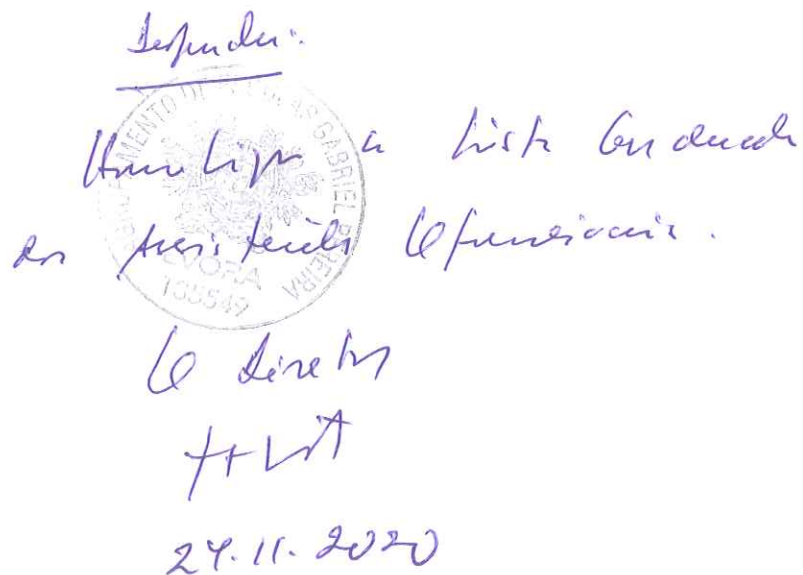 Despacho:
Homologo a Lista Graduada
dos Assistentes Operacionais.
O Diretor
24.11.2020
AGRUPAMENTO DE ESCOLAS GABRIEL PEREIRA
ÉVORA
135549